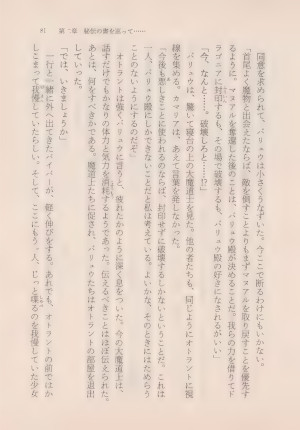 91　第二章　秘伝の書を巡って……
同意を求められて、バリュウは小さくうなずいた。今ここで断るわけにもいかない。
「首尾よく魔物と出会えたならば、敵を倒すことよりもまずマヌアルを取り戻すことを優先
するように。マヌアルを奪還した後のことは、バリュウ殿が決めることだ。我らの力を借りてド
ラゴニアに対印するも、その場で破壊するも、バリュウ殿の好きになされるがいい」
「今、なんと……。破壊しろと……!?」
バリュウは、驚いて寝台の上の大魔道士を見た。他の者たちも、同じようにオトラントに視
線を集める。カマリアは、あえて言葉を発しなかった。
「今後も悪しきことに使われるのならば、封印せずに破壊するしかないということだ。それが
一人、バリュウ殿にしかできないことだと私は考えている。よいかな、そのときにはためらう
ことのないようにするのだぞ」
オトラントは強くバリュウに言うと、疲れたかのように深く息をついた。今の大魔道士は、
話すだけでもかなりの体力と気力を消耗するようであった。伝えるべきことはほぼ伝えられた。
あとは、何をすべきかである。魔道士たちに促され、バリュウたちはオトラントの部屋を退出
していった。
「では、いきましょうか」
一行と一緒に外へ出てきたバイパーが、軽く伸びをする。あれでも、オトラントの前ではか
しこまって我慢していたらしい。そして、ここにもう一人、じっと喋るのを我慢していた少女